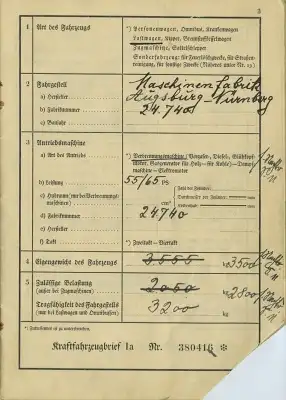 3
1 Art des Fahrzeugs
*) Personenwagen, Omnibus, Krankenwagen
Lastwagen, Kipper, Brennstoffkesselwagen
Zugmaschine, Sattelschlepper
Sonderfahrzeug: für Feuerlöschzwecke, für Straßenreinigung, für sonstige Zwecke (Näheres unter Nr. 13)
2 Fahrgestell
a) Hersteller
b) Fabriknummer
c) Baujahr
Maschinenfabrik
Augsburg-Nürnberg
24.740
3 Antriebsmaschine
a) Art des Antriebs
*) Verbrennungsmaschine: (Vergaser-, Diesel-, Glühkopf-
Motor, Gasgenerator für Holz- und Kohle) — Dampf-
maschine — Elektromotor
b) Leistung
55/65 PS
c) Hubraum (nur bei Verbrennungs-
maschinen)
cm³
Zahl der Zylinder
d) Fabriknummer
24740
e) Hersteller
f) Takt
*) Zweitakt — Viertakt
4 Eigengewicht des Fahrzeugs
3555 kg 3500
5 Zulässige Belastung
(außer bei Zugmaschinen)
2050 kg 2800
Tragfähigkeit des Fahrgestells
(nur bei Lastwagen und Omnibussen)
3200 kg
Kraftfahrzeugbrief Ia Nr. 380416 *